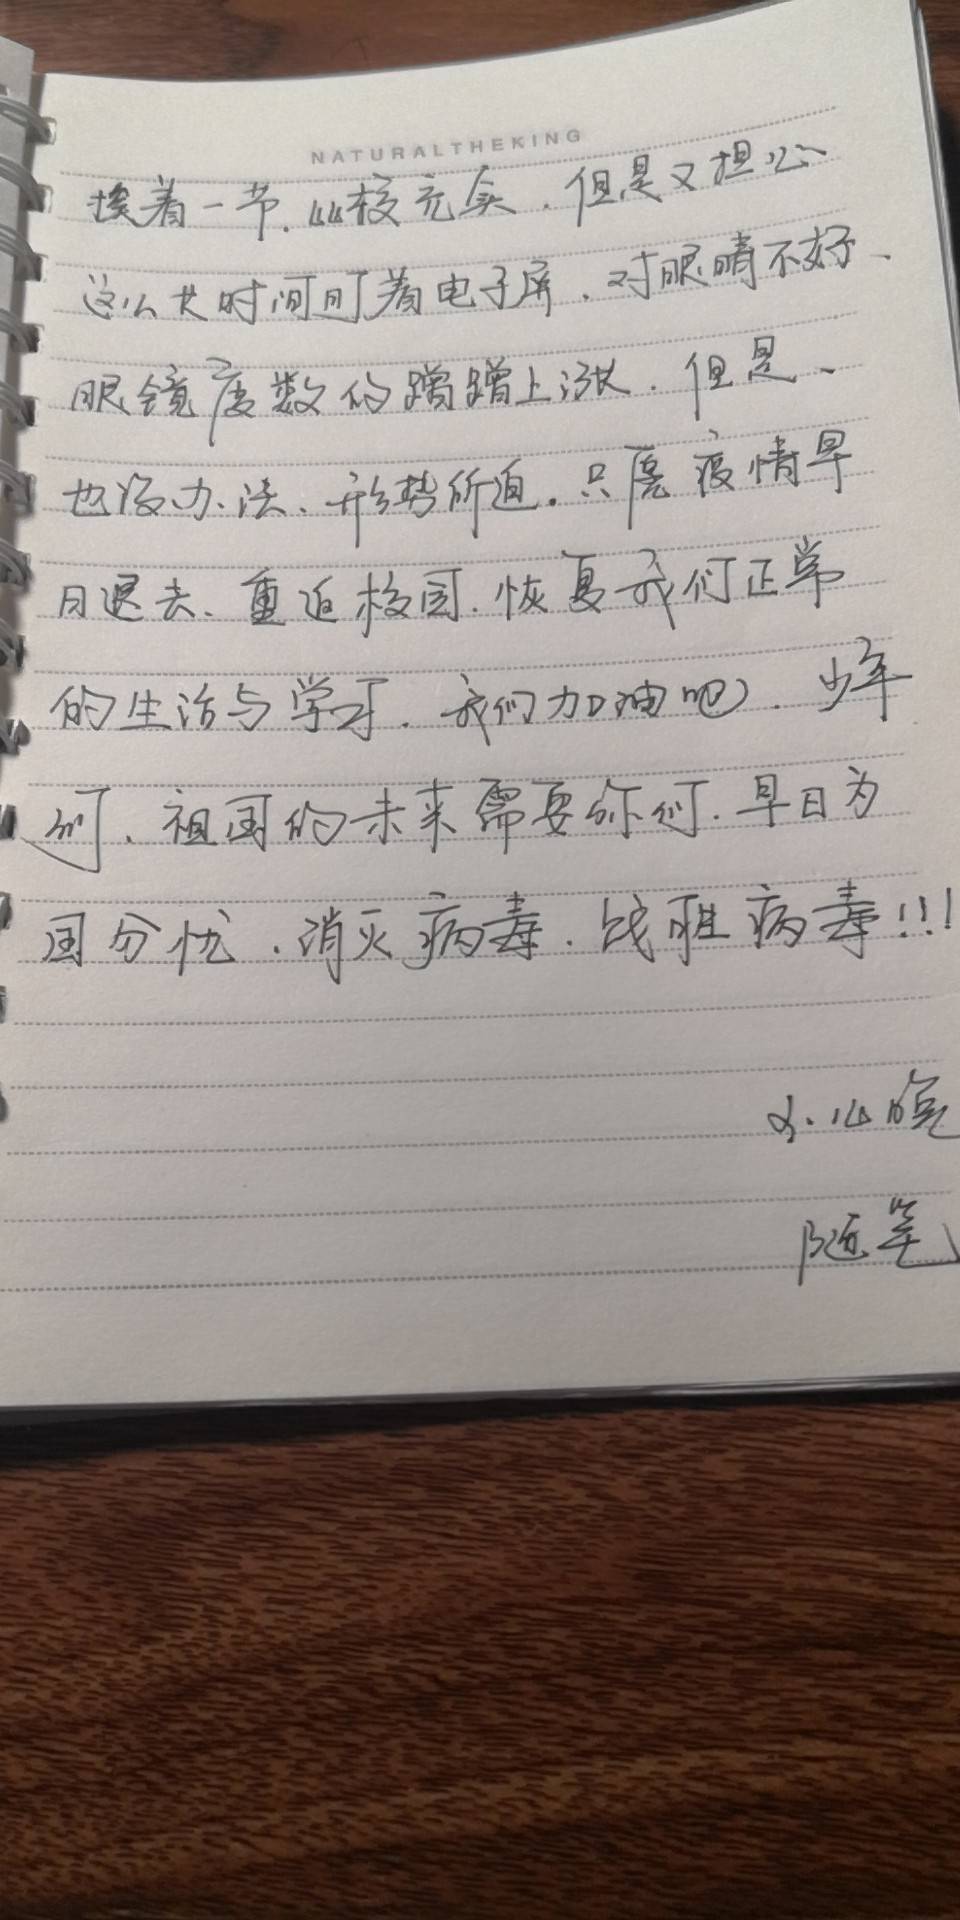 NATURALTHEKING
挨着一节，充实，但是又担心
这么长时间盯着电子屏，对眼睛不好、
眼镜度数的蹭蹭上涨，但是、
也没办法、形势所迫。只愿疫情早
日退去、重返校园，恢复我们正常
的生活与学习，我们加油吧，少年
们，祖国的未来需要你们，早日为
国分忧，消灭病毒，战胜病毒!!!
心
随笔